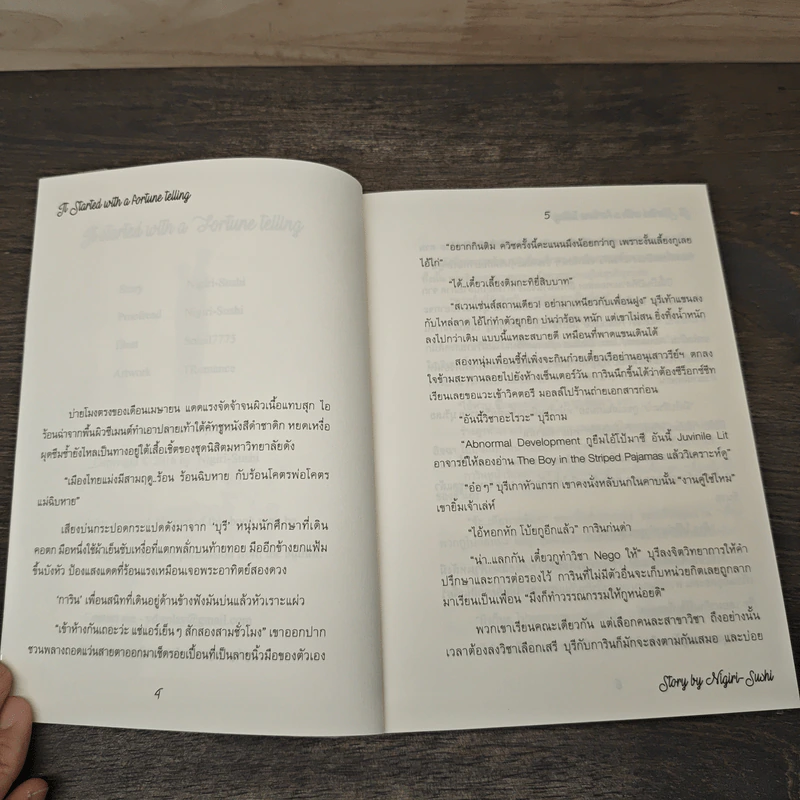 It Started with a fortune telling
บ่ายโมงตรงของเดือนเมษายน แดดแรงจัดจ้าจนผิวเนื้อแทบสุก ไอ
ร้อนฉ่าจากพื้นผิวซีเมนต์ทำเอาปลายเท้าใต้คัทชูหนังสีดำซาดิก หยดเหงื่อ
ผุดซึมซ้ำยังไหลเป็นทางอยู่ใต้เสื้อเชิ้ตของชุดนิสิตมหาวิทยาลัยดัง
“เมืองไทยแม่งมีสามฤดู..ร้อน ร้อนฉิบหาย กับร้อนโคตรพ่อโคตร
แม่ฉิบหาย”
เสียงบ่นกระปอดกระแปดดังมาจาก ‘บุรี’ หนุ่มนักศึกษาที่เดิน
คอตก มือหนึ่งใช้ผ้าเย็นซับเหงื่อที่แตกพลั่กบนท้ายทอย มืออีกข้างยกแฟ้ม
ขึ้นบังหัว ป้องแสงแดดที่ร้อนแรงเหมือนเจอพระอาทิตย์สองดวง
‘การิน’ เพื่อนสนิทที่เดินอยู่ด้านข้างฟังมันบ่นแล้วหัวเราะแผ่ว
“เข้าห้างกันเถอะว่ะ แช่แอร์เย็นๆ สักสองสามชั่วโมง” เขาออกปาก
ชวนพลางถอดแว่นสายตาออกมาเช็ดรอยเปื้อนที่เป็นลายนิ้วมือของตัวเอง
4
5
“อยากกินติม ควิซครั้งนี้คะแนนมึงน้อยกว่ากู เพราะงั้นเลี้ยงกูเลย
ไอ้ไก่”
“ได้..เดี๋ยวเลี้ยงติมกะทิยี่สิบบาท”
“สเวนเซ่นส์สถานเดียว! อย่ามาเหนียวกับเพื่อนฝูง” บุรีเท้าแขนลง
กับไหล่ลาด ไอ้ไก่ทำตัวยุกยิก บ่นว่าร้อน หนัก แต่เขาไม่สน ยิ่งทิ้งน้ำหนัก
ลงไปกว่าเดิม แบบนี้แหละสบายดี เหมือนที่พาดแขนเดินได้
สองหนุ่มเพื่อนซี้ที่เพิ่งจะกินก๋วยเตี๋ยวเรือย่านอนุสาวรีย์ฯ ตกลง
ใจข้ามสะพานลอยไปยังห้างเซ็นเตอร์วัน การินนึกขึ้นได้ว่าต้องซีร็อกซ์ชีท
เรียนเลยขอแวะเข้าวิคตอรี่ มอลล์ไปร้านถ่ายเอกสารก่อน
“อันนี้วิชาอะไรวะ” บุรีถาม
“Abnormal Development กูยืมไอ้โป้มาซี อันนี้ Juvinile Lit
อาจารย์ให้ลองอ่าน The Boy in the Striped Pajamas แล้ววิเคราะห์ดู”
“อ๋อๆ” บุรีเกาหัวแกรก เขาคงนั่งหลับนกในคาบนั้น “งานคู่ใช่ไหม”
เขายิ้มเจ้าเล่ห์
“ไอ้หอกหัก โบ้ยกูอีกแล้ว” การินก่นด่า
“น่า..แลกกัน เดี๋ยวกูทำวิชา Nego ให้” บุรีลงจิตวิทยาการให้คำ
ปรึกษาและการต่อรองไว้ การินที่ไม่มีตัวอื่นจะเก็บหน่วยกิตเลยถูกลาก
มาเรียนเป็นเพื่อน “มึงก็ทำวรรณกรรมให้กูหน่อยดิ”
พวกเขาเรียนคณะเดียวกัน แต่เลือกคนละสาขาวิชา ถึงอย่างนั้น
เวลาต้องลงวิชาเลือกเสรี บุรีกับการินก็มักจะลงตามกันเสมอ และบ่อย
Story by Nigiri-Sushi